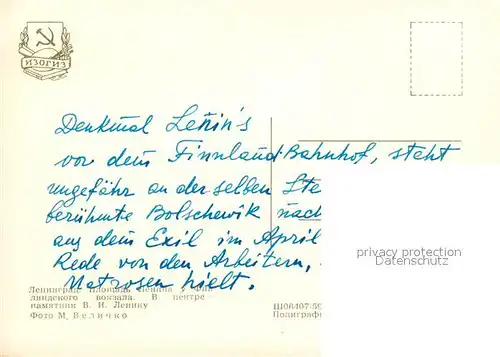 ИЗОГИЗ
Denkmal Lenin's
vor dem Finnland-Bahnhof, steht
ungefähr an der selben Ste
berühmte Bolschewik nach
aus dem Exil im April
Rede von den Arbeitern,
Matrosen hielt.
privacy protection
DATENSCHUTZ
Ленинград. Площадь Ленина у Фин-
ляндского вокзала. В центре
памятник В. И. Ленину
Фото М. Величко
Ш06407-59
Полиграф